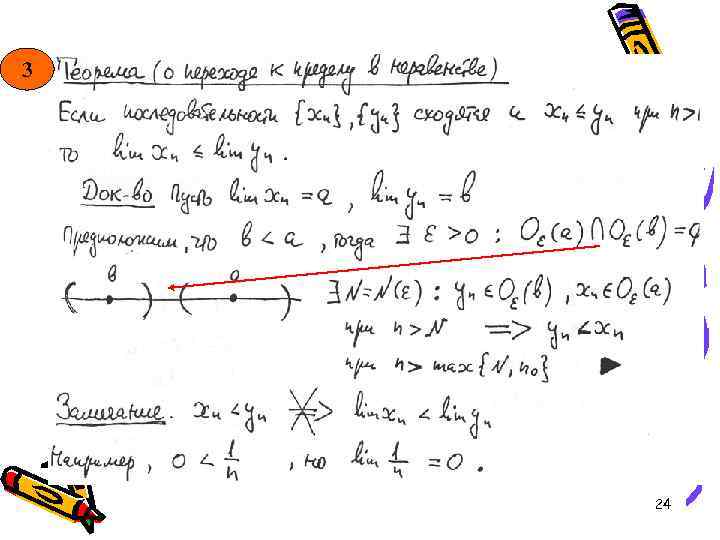 3 Теорема (о переходе к пределу в неравенстве)
Если последовательности {xₙ}, {yₙ} сходятся и xₙ ≤ yₙ при n>
то lim xₙ ≤ lim yₙ.
Док-во Пусть lim xₙ = a, lim yₙ = b
Предположим, что b < a, тогда ∃ ε > 0 : Oε(a) ∩ Oε(b) =
b a
∃ N=N(ε) : yₙ ∈ Oε(b), xₙ ∈ Oε(a)
при n > N ⟹ yₙ < xₙ
при n > max{N, n₀} ▶
Замечание. xₙ < yₙ ⇏ lim xₙ < lim yₙ
Например, 0 < 1/n, но lim 1/n = 0.
24